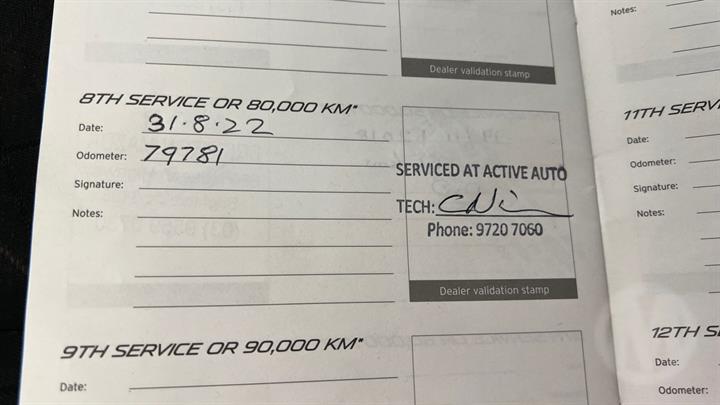 Dealer validation stamp
8TH SERVICE OR 80,000 KM*
Date: 31.8.22
Odometer: 79781
Signature:
Notes:
SERVICED AT ACTIVE AUTO
TECH:
Phone: 9720 7060
Dealer validation stamp
9TH SERVICE OR 90,000 KM*
Date:
Notes:
11TH SERV
Date:
Odometer:
Signature:
Notes:
12TH S
Date:
Odometer: